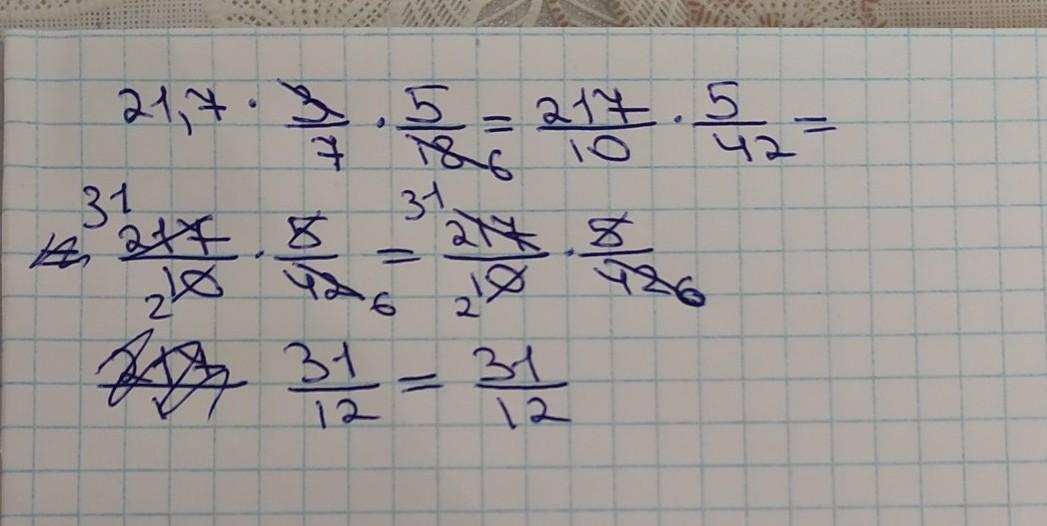 21,7 · 3/7 · 5/18 6 = 217/10 · 5/42 =
31 217/10 2 · 5/42 6 = 31 217/10 2 · 5/42 6
31/12 = 31/12